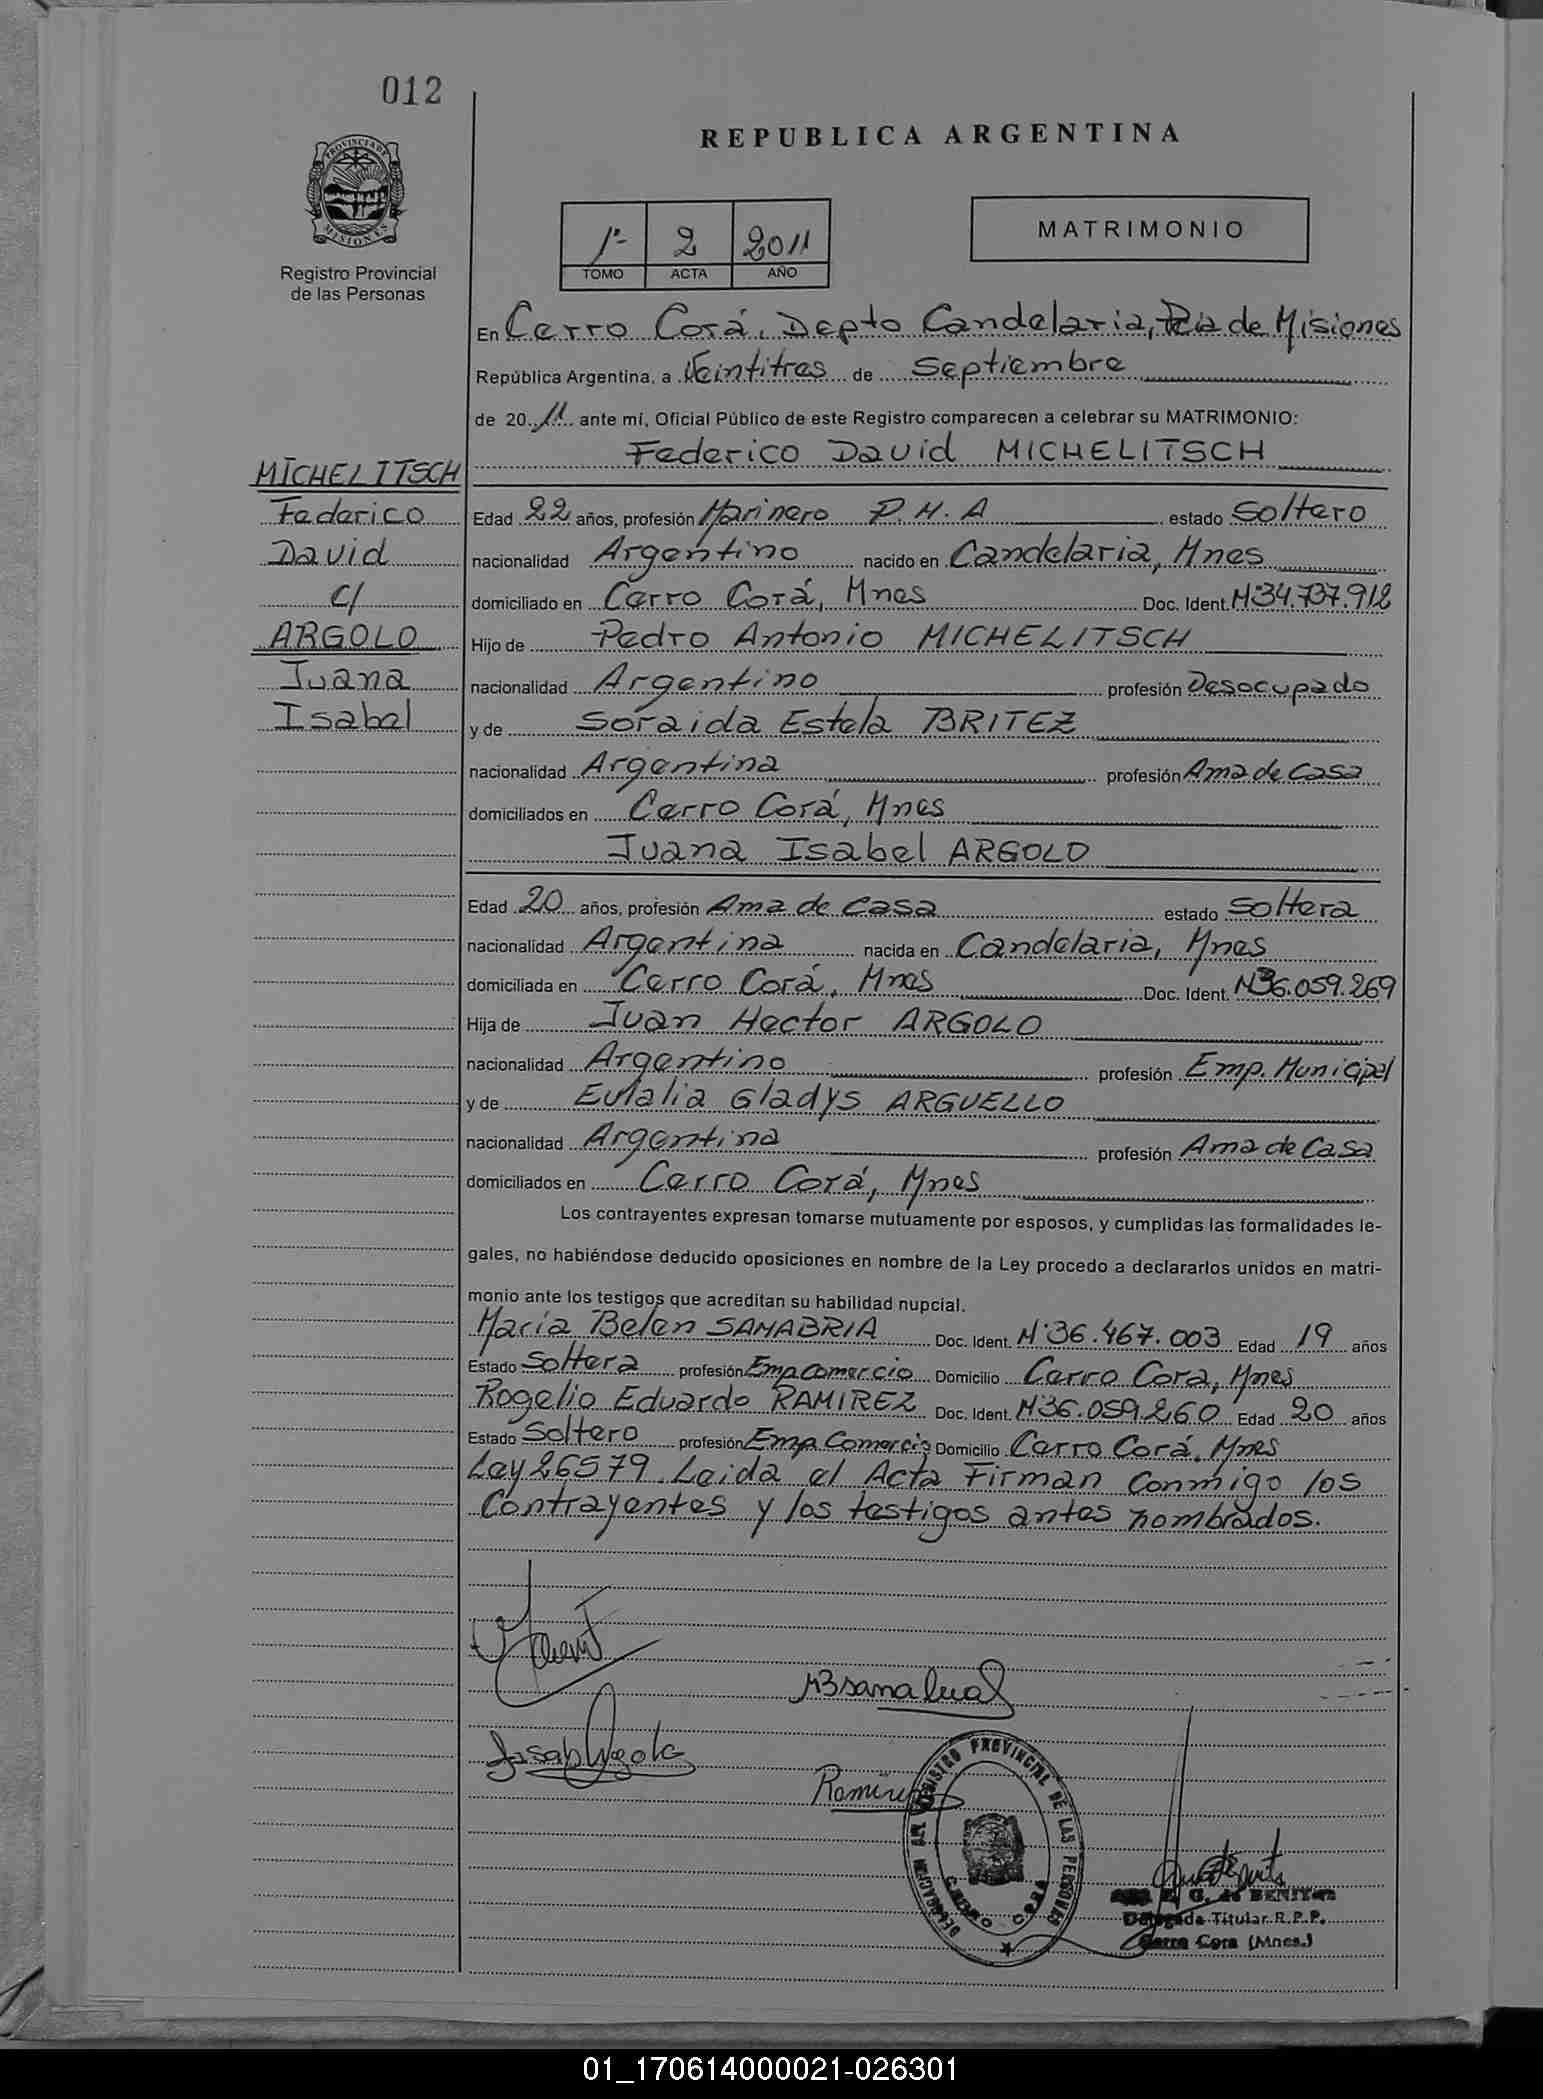 012
REPUBLICA ARGENTINA
PROVINCIA DE
MISIONES
Registro Provincial
de las Personas
1º- 2 2011
TOMO ACTA AÑO
MATRIMONIO
En Cerro Corá, Depto Candelaria, Pcia de Misiones
República Argentina, a Veintitres de Septiembre
de 2011 ante mí, Oficial Público de este Registro comparecen a celebrar su MATRIMONIO:
Federico David MICHELITSCH
MICHELITSCH
Federico
David
c/
ARGOLO
Juana
Isabel
Edad 22 años, profesión Marinero P.N.A estado Soltero
nacionalidad Argentino nacido en Candelaria, Mnes
domiciliado en Cerro Corá, Mnes Doc. Ident. Nº34.737.912
Hijo de Pedro Antonio MICHELITSCH
nacionalidad Argentino profesión Desocupado
y de Soraida Estela BRITEZ
nacionalidad Argentina profesión Ama de Casa
domiciliados en Cerro Corá, Mnes
Juana Isabel ARGOLO
Edad 20 años, profesión Ama de Casa estado Soltera
nacionalidad Argentina nacida en Candelaria, Mnes
domiciliada en Cerro Corá, Mnes Doc. Ident. Nº36.059.269
Hija de Juan Hector ARGOLO
nacionalidad Argentino profesión Emp. Municipal
y de Eulalia Gladys ARGUELLO
nacionalidad Argentina profesión Ama de Casa
domiciliados en Cerro Corá, Mnes
Los contrayentes expresan tomarse mutuamente por esposos, y cumplidas las formalidades le-
gales, no habiéndose deducido oposiciones en nombre de la Ley procedo a declararlos unidos en matri-
monio ante los testigos que acreditan su habilidad nupcial.
María Belen SANABRIA Doc. Ident. Nº36.467.003 Edad 19 años
Estado Soltera profesión Emp Comercio Domicilio Cerro Cora, Mnes
Rogelio Eduardo RAMIREZ Doc. Ident. Nº36.059.260 Edad 20 años
Estado Soltero profesión Emp Comercio Domicilio Cerro Corá, Mnes
Ley 26579. Leida el Acta Firman conmigo los
contrayentes y los testigos antes nombrados.
Isab Argolo
Ramirez
DELEGACION DEL REGISTRO PROVINCIAL DE LAS PERSONAS
CERRO CORA
E. G. de BENITEZ
Delegada Titular R.P.P.
Cerro Cora (Mnes.)
01_170614000021-026301